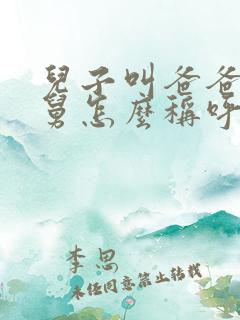 兒子叫爸爸
舅怎麼稱呼
李思
未經同意禁止轉載